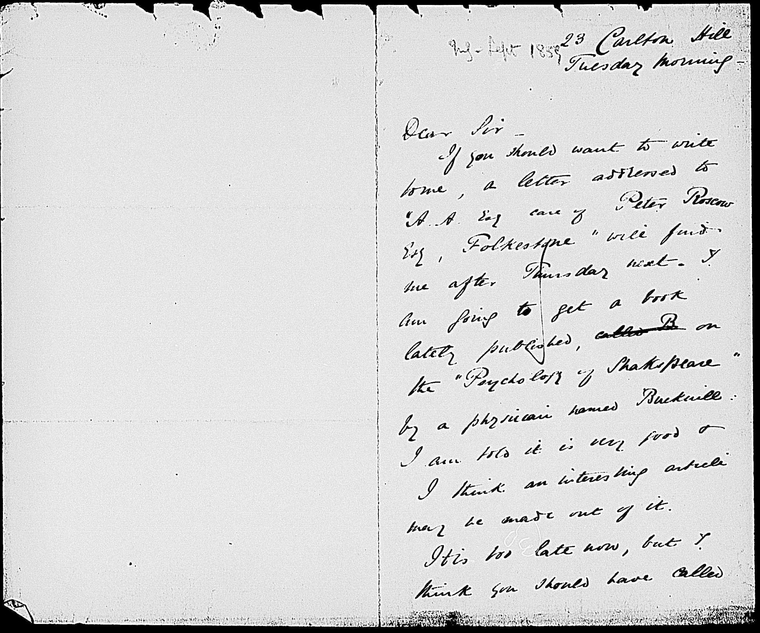 23 Carlton Hill
Tuesday Morning -
Dear Sir -
If you should want to write
to me, a letter addressed to
"A. A. Esq care of Peter Roscow
Esq, Folkestone" will find
me after Thursday next. I
am going to get a book
lately published, called B on
the "Psychology of Shakspeare"
by a physician named Bucknill:
I am told it is very good &
I think an interesting article
may be made out of it.
It is too late now, but I
think you should have called